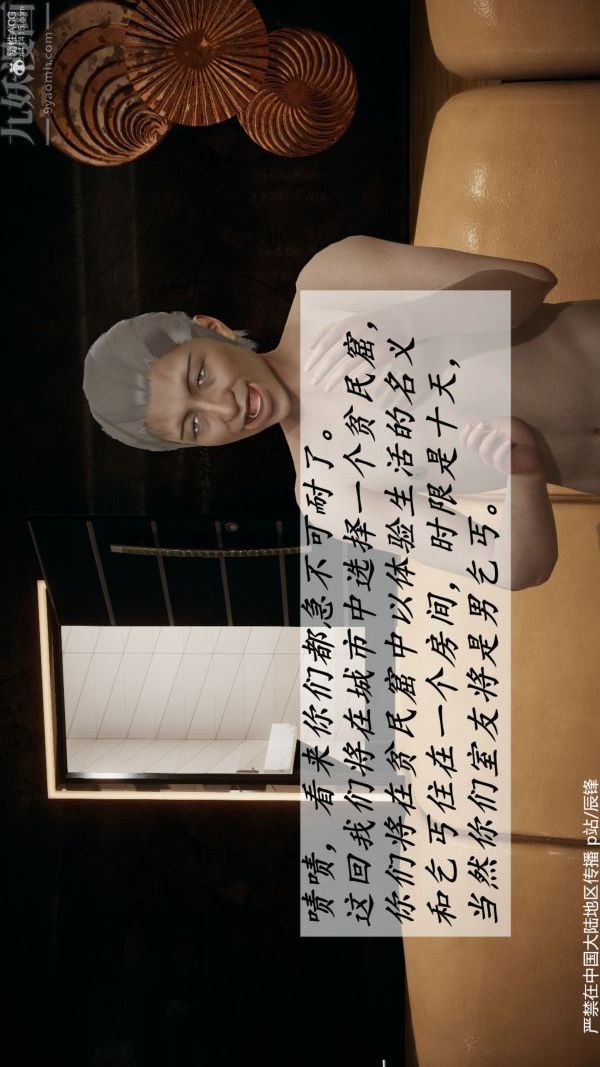 啧啧，看来你们都急不可耐了。
这回我们将在城市中选择一个贫民窟，
你们将在贫民窟中以体验生活的名义
和乞丐住在一个房间，时限是十天，
当然你们室友将是男乞丐。
严禁在中国大陆地区传播 p站/辰锋
九妖漫画
9yaomh.com